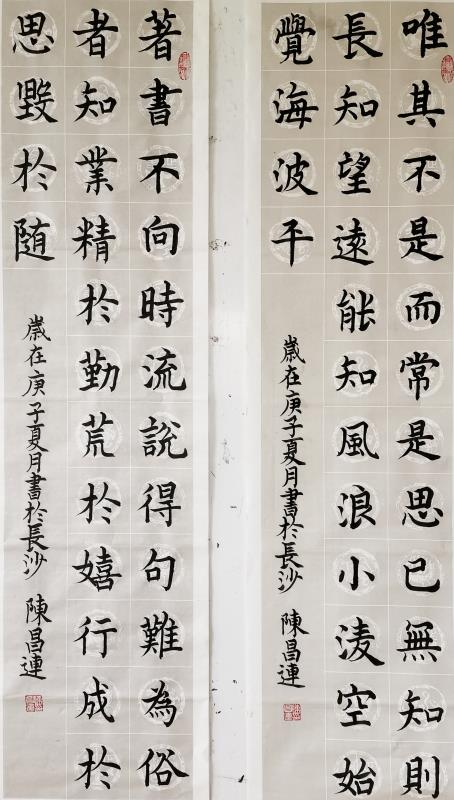 唯其不是而常是思已無知則
長知望遠能知風浪小淩空始
覺海波平
歲在庚子夏月書於長沙 陳昌連
著書不向時流說得句難為俗
者知業精於勤荒於嬉行成於
思毀於随
歲在庚子夏月書於長沙 陳昌連